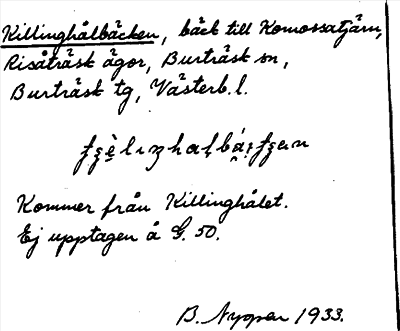 Killinghålbäcken, bäck till Komossatjärn,
Risåträsk ägor, Burträsk sn,
Burträsk tg, Västerb. l.
Kommer från Killinghålet.
Ej upptagen å G. 50.
B. 1933.